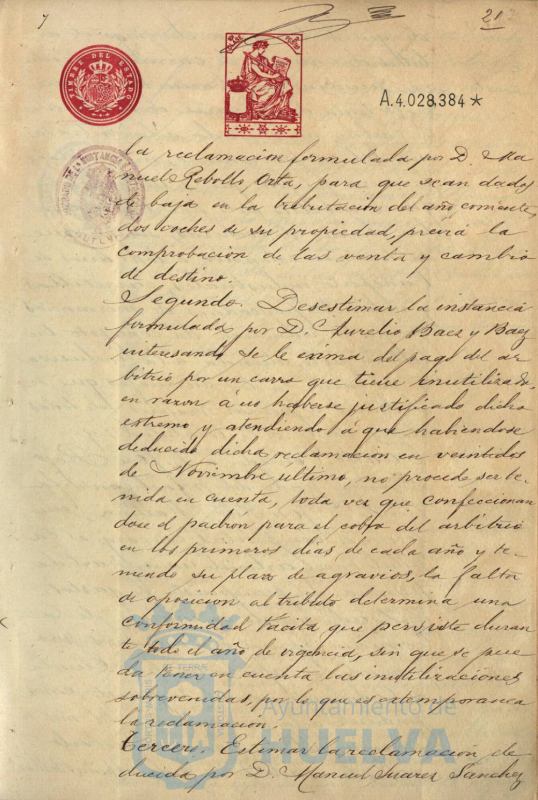 7
21
TIMBRE DEL ESTADO
A.4.028,384 *
la reclamacion formulada por D. Ma
nuel Rebollo Orta, para que sean dados
de baja en la tributacion del año corriente,
dos coches de su propiedad, previa la
comprobacion de las venta y cambio
de destino.
Segundo. Desestimar la instancia
formulada por D. Aurelio Baez y Baez
interesando se le exima del pago del ar
bitrio por un carro que tiene inutilizado,
en razon á no haberse justificado dicho
extremo y atendiendo á que habiendose
deducido dicha reclamacion en veintidos
de Noviembre último, no procede ser te-
nida en cuenta, toda vez que confeccionan
dose el padrón para el cobro del arbitrio
en los primeros dias de cada año y te-
niendo su plazo de agravios, la falta
de oposicion al tributo determina una
conformidad tácita que persiste duran
te todo el año de vigencia, sin que se pue
da tener en cuenta las inutilizaciones
sobrevenidas, por lo que es extemporanea
la reclamación.
Tercero. Estimar la reclamacion de
ducida por D. Manuel Suarez Sanchez
Ayuntamiento de
HUELVA